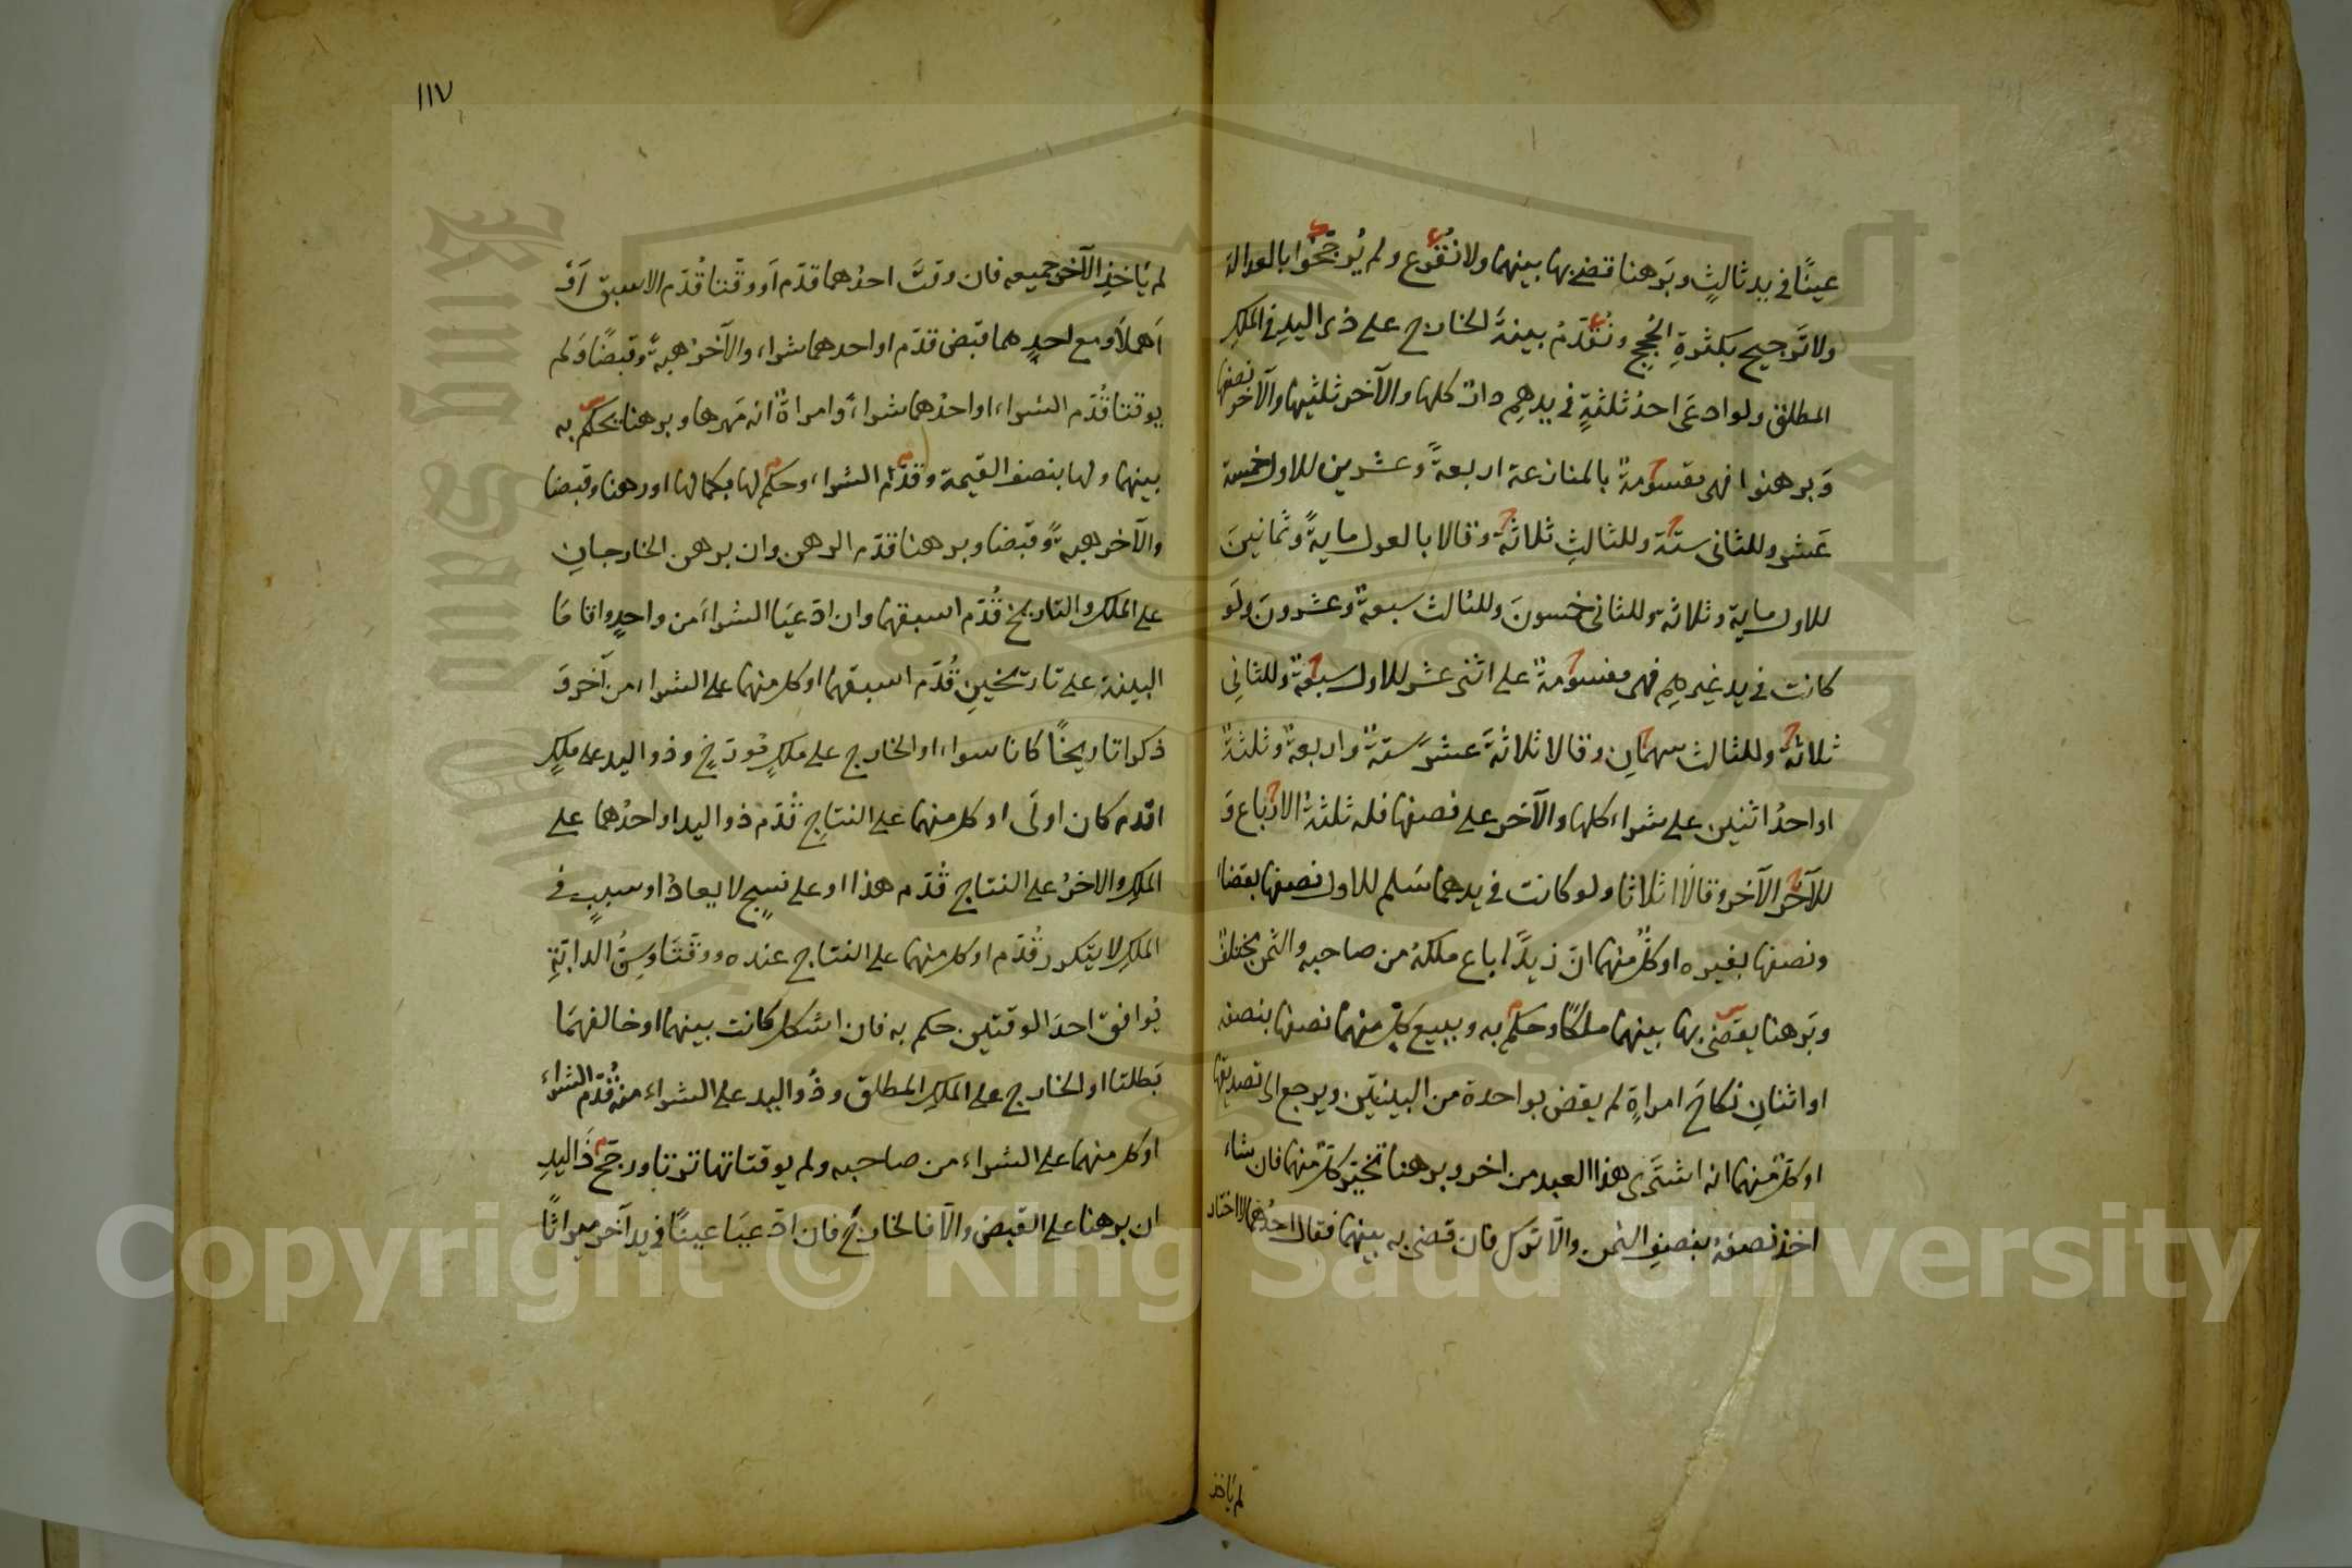 عينًا في يد ثالثٍ وبَرهنا قضي بها بينهما ولا نقرع ولم يُرجّحُوا بالعدالة
ولا تَرجيح بكثرةِ الحُججِ ونُقدّمُ بينةَ الخارج على ذي اليدِ في الملكِ
المطلق ولو ادعَى احدُ ثلثةٍ في يدهِم دارًا كلها والآخر ثلثيها والآخر نصفها
وَبرهنوا فهي مقسومةٌ بالمنازعة اربعةً وعشرين للاول خمسة
عَشر وللثاني ستة وللثالثِ ثلاثة وقالا بالعول مايةً وثمانينَ
للاول ماية وثلاثة وللثاني خمسونَ وللثالث سبعةٌ وعشرونَ ولَو
كانت في يد غيرهِم فهي مقسومةٌ على اثنى عشر للاول سبعةٌ وللثانِي
ثلاثة وللثالث سهمانِ وقالا ثلاثةَ عشرَ ستةٌ واربعةٌ وثلثةٌ
او احدُ اثنين على شراء كلها والآخر على نصفها فله ثلثةُ الارباع وَ
للآخر الآخر وقالَا اثلاثا ولو كانت في يدهما سَلم للاول نصفها بقضاء
ونصفها بغيره او كلٌّ منهما انّ زيدًا باع ملكهُ من صاحبه والثمن مختلفٌ
وبَرهنا يقضى بها بينهما ملكًا وحكم به وببيع كلٍّ منهما نصفها بنصفه
او اثنانِ نكاحَ امراةٍ لم يقض بواحدة من البينتين ويرجع الى تصديقها
او كلٌّ منهما انه اشتَرى هذا العبد من اخر وبرهنا تخيّر كلٌّ منهما فان شاء
اخذ نصفهُ بنصفِ الثمن والّا تركَ فان قضى به بينهما فقال احدُهما لا اختار
لم يَاخذ
١١٧
لم يَاخذِ الآخر جميعه فان وقّتَ احدُهما قدّم اَو وقّتا قُدّم الاسبق اَوْ
اَهملاَ ومع احدِهما قبض قدّم او احدهما شراء والآخرُ هبةً وقبضًا ولم
يوقتا قُدّم الشراء او احدُهما شراءً وامراةٌ انه مَهرها وبرهنا يحكم به
بينهما ولها بنصف القيمة وقدّم الشراء وحكم لها بكمالها او رهنا وقبضا
والآخر هبةً وقبضا وبرهنا قدّم الرهن وان برهن الخارجانِ
على الملك والتاريخ قُدّم اسبقهما وان ادّعيَا الشراءَ من واحدٍ واقامَا
البينة على تاريخينِ قُدّم اسبقهما او كل منهما على الشراء من آخر وَ
ذكرا تاريخًا كانا سواء او الخارج على ملكٍ مُورّخٍ وذو اليد على ملكٍ
اقدم كان اولَى او كل منهما على النتاجِ قُدّم ذو اليد او احدُهما على
الملكِ والاخرُ على النتاج قُدّم هذا او على نسجٍ لا يعادُ او سببٍ في
الملكِ لا يتكرر قُدّم او كل منهما على النتاج عنده ووقّتَا وسِنُّ الدابّةِ
يُوافق احدَ الوقتين حكم به فان اشكل كانت بينهما او خالفهمَا
بَطلتا او الخارج على الملكِ المطلق وذُو اليد على الشراء منه قُدّم الشراء
او كل منهما على الشراء من صاحبه ولم يوقتا تهاترتا ورجّح ذَا اليدِ
ان برهنا على القبض والّا فالخارجُ فان ادّعيَا عينًا في يد آخر ميراثًا
Copyright © King Saud University